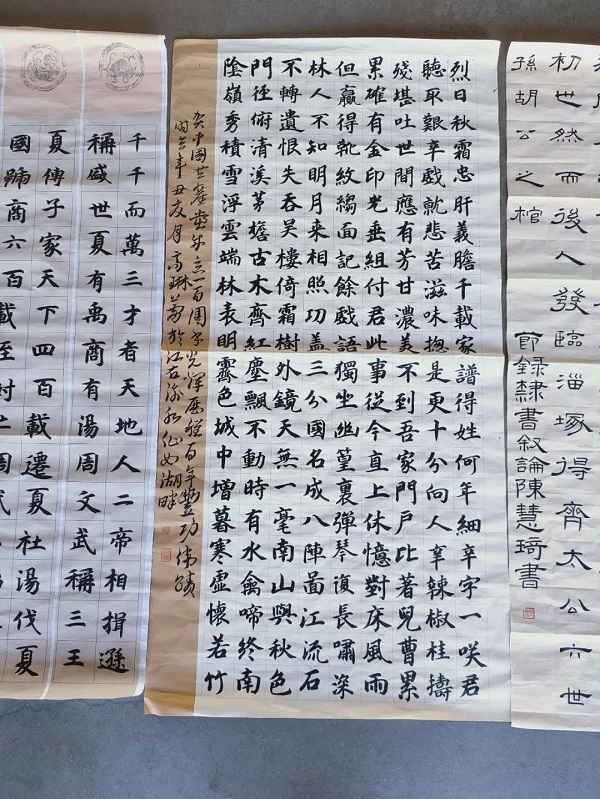 初世然而後人發臨淄塚得齊太公六世
孫胡公之棺
節錄隸書叙論陳慧琦書
烈日秋霜忠肝義膽千載家譜得姓何年細辛字一咲君
聽取艱辛戲就悲苦滋味揔是更十分向人辜辣椒桂擣
殘堪吐世間應有芳甘濃美不到吾家門戶比著兒曹累
累確有金印光垂組付君此事從今直上休憶對床風雨
但贏得靴紋縐面記餘戲語獨坐幽篁裏彈琴復長嘯深
林人不知明月來相照功蓋三分國名成八陣圖江流石
不轉遺恨失吞吳樓倚霜樹外鏡天無一毫南山與秋色
門徑俯清溪茅檐古木齊紅塵飄不動時有水禽啼終南
陰嶺秀積雪浮雲端林表明霽色城中增暮寒虛懷若竹
賀中國共產黨成立一百周年光輝歷程百年豐功偉績
年丑友月高琳於江右渝水仙女湖畔
千千而萬三才者天地人二帝相揖遜
稱盛世夏有禹商有湯周文武稱三王
夏傳子家天下四百載遷夏社湯伐夏
國號商六百載至紂亡周武